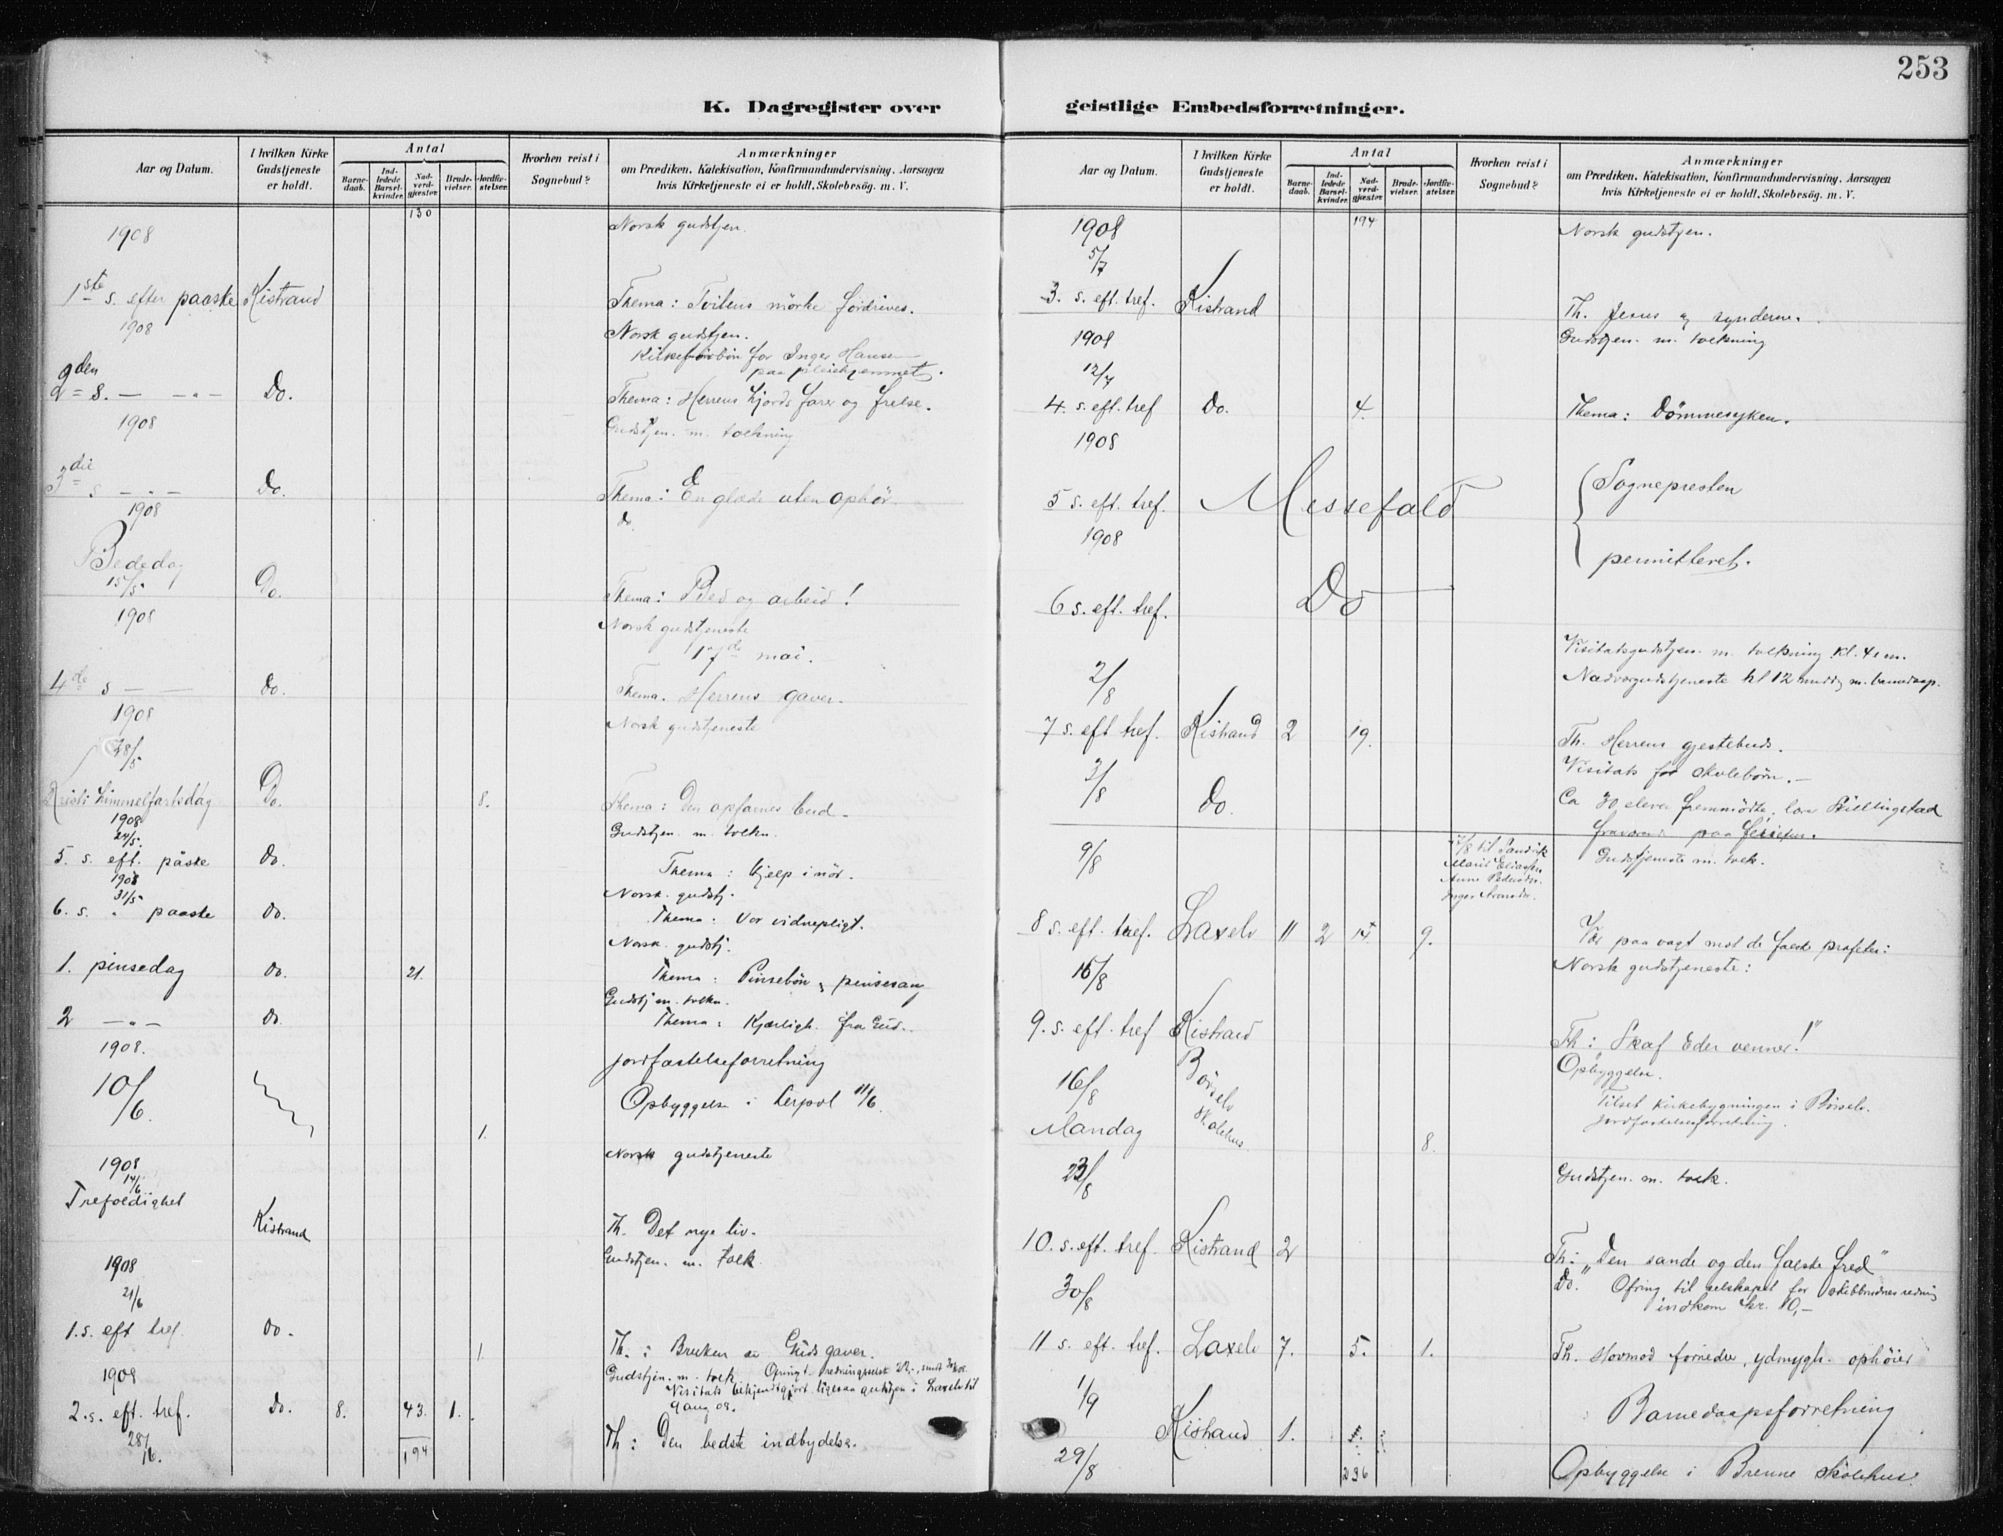 253
K. Dagregister over
geistlige Embedsforretninger.
Aar og Datum.
I hvilken Kirke Gudstjeneste er holdt.
Antal
Barnedaab.
Indledede Barselkvinder.
Nadverdgjæster.
Brudevielser.
Jordfæstelser.
Hvorhen reist i Sognebud?
Anmærkninger
om Prædiken, Katekisation, Konfirmandundervisning, Aarsagen
hvis Kirketjeneste ei er holdt, Skolebesøg. m. V.
130
1908
Norsk gudstjen.
1ste s. efter paaske Kistrand
Thema: Tvilens mörke fordrives.
1908
Norsk gudstjen.
Kirkeforbön for Inger Hansen
paa pleiehjemmet.
2den s. — " — Do.
Thema: Herrens hjords farer og frelse.
1908
Gudstjen. m. tolkning
3die s — " — Do.
Thema: En glæde uten ophör.
1908
do
Bededag
15/5 Do.
Thema: Bed og arbeid!
1908
Norsk gudstjeneste
17de mai.
4de s — — Do.
Thema. Herrens gaver.
1908
Norsk gudstjeneste
28/5
Kristi himmelfartsdag Do. 8.
Thema: Den opfarnes bud.
1908
24/5.
Gudstjen. m. tolkn.
5. s. eft. påske Do.
Thema: hjelp i nöd.
1908
31/5
Norsk. gudstj.
6. s. " paaske Do.
Thema: Vor vidnepligt.
Norsk. gudstj.
1. pinsedag Do. 21.
Thema: Pinsebön & pinsesang
Gudstj. m. tolkn.
2 — " — Do.
Thema: Kjærligh. fra Gud.
1908.
Jordfæstelseforretning
10/6.
Opbyggelse i Lerpol 11/6.
1.
1908
14/6
Norsk gudstjeneste
Trefoldighet
Kistrand
Th. Det nye liv.
1908
Gudstjen. m. tolk
21/6
1. s. eft tref. Do.
1
Th.: Bruken av Guds gaver.
1908
Gudstjen. m. tolk
Visitats bekjendtgjort. ligesaa gudstjen i Laxelv til
9 aug 08.
2. s. eft. tref. Do. 8. 43. 1.
28/6. 194
Th: Den bedste indbydelse.
Aar og Datum.
I hvilken Kirke Gudstjeneste er holdt.
Antal
Barnedaab.
Indledede Barselkvinder.
Nadverdgjæster.
Brudevielser.
Jordfæstelser.
Hvorhen reist i Sognebud?
Anmærkninger
om Prædiken, Katekisation, Konfirmandundervisning, Aarsagen
hvis Kirketjeneste ei er holdt, Skolebesøg. m. V.
1908 194
Norsk gudstjen.
5/7
3. s. eft. tref. Kistrand
Th. Jesus og synderne.
1908
Gudstjen. m. tolkning
12/7
4. s. eft. tref Do. 4.
Thema: Dömmesyken.
1908
5 s. eft. tref. Messefald
Sognepresten
1908
permitteret.
6 s. eft. tref. Do
Visitatsgudstjen. m. tolkning kl. 4 em.
2/8
Nadvergudstjeneste kl 12 midd m. barnedaap.
7 s. eft tref. Kistrand 2 19.
Th. Herrens gjestebud.
3/8
Visitats for skolebørn.
Do.
Ca 30 elever fremmödte,
9/8
Gudstjeneste m. tolk.
8 s. eft. tref. Laxelv 11 2 15 9.
Vær paa vagt mot de falske profeter:
16/8
Norsk gudstjeneste:
9. s. eft. tref Kistrand
Th: "Skaf Eder venner!"
16/8
Børselv skolehus
Opbyggelse.
Tilset kirkebygningen i Børselv.
Mandag 8.
Jordfæstelsesforretning.
23/8
Gudstjen. m. tolk.
10. s. eft. tref. Kistrand 2
Th: "Den sande og den falske fred"
30/8
Do. Ofring til selskapet for skibbrudnes redning
indkom kr. 10,-
11 s. eft. tref. Laxelv 7. 5. 1.
Th. Hovmod fornedrer, ydmygh. ophöier
1/9
Kistrand 1.
Barnedaapsforretning
29/8 236
Opbyggelse i Brenne Skolehus.